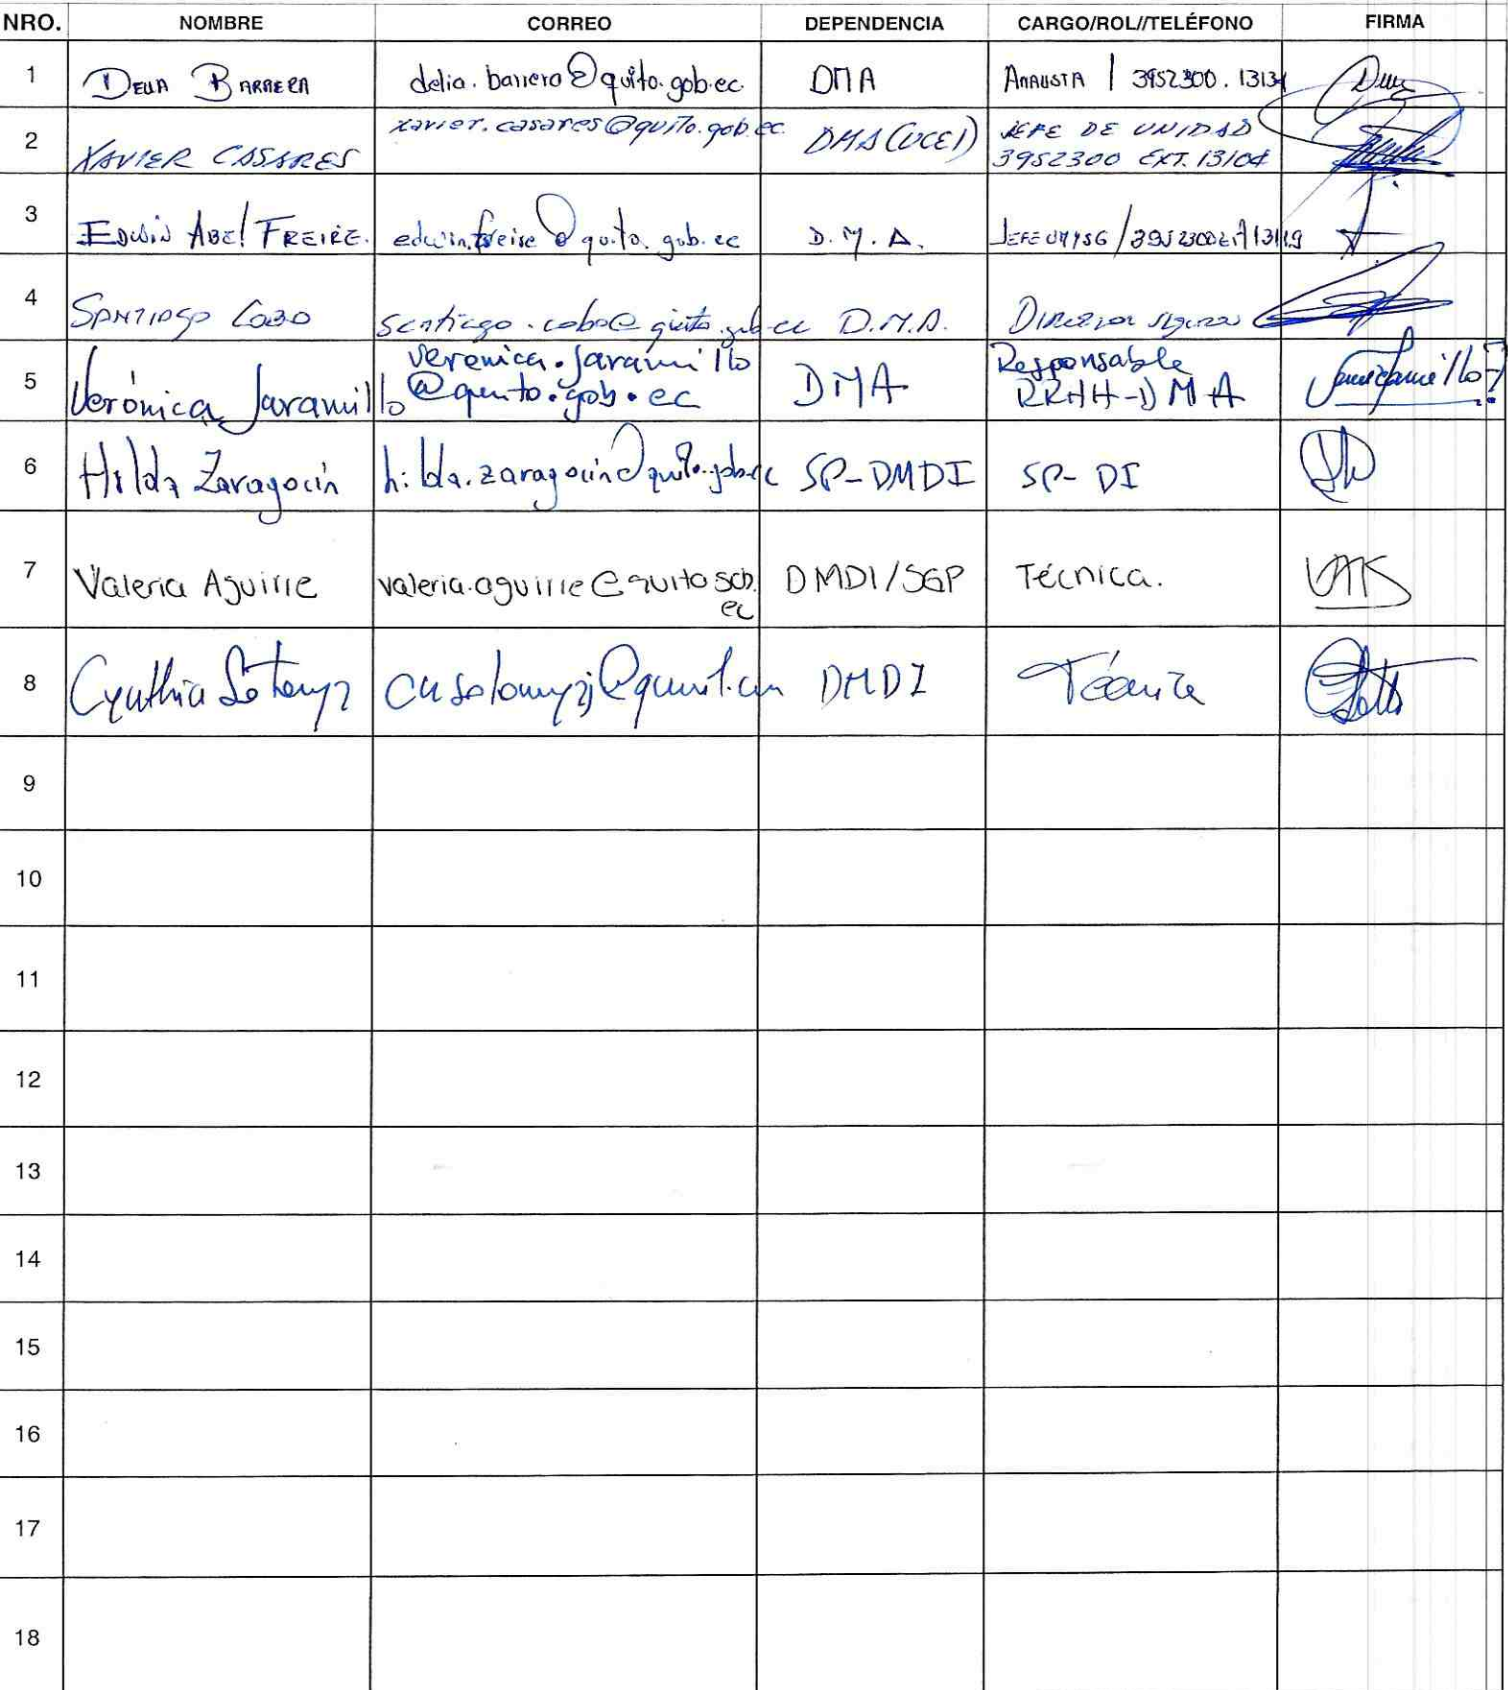 NRO. NOMBRE CORREO DEPENDENCIA CARGO/ROL//TELÉFONO FIRMA
1 DELIA BARRERA delia.barrera@quito.gob.ec DMA ANALISTA | 3952300.13131
2 XAVIER CASARES xavier.casares@quito.gob.ec DMA (UCEI) JEFE DE UNIDAD
3952300 EXT. 13104
3 EDWIN ABEL FREIRE. edwin.freire@quito.gob.ec D.M.A. JEFE
4 SANTIAGO COBO santiago.cobo@quito.gob.ec D.M.A. DIRECTOR
5 Verónica Jaramillo veronica.jaramillo
@quito.gob.ec DMA Responsable
RRHH-DMA
6 Hilda Zaragocin hilda.zaragocin@quito.gob.ec SP-DMDI SP-DI
7 Valeria Aguirre valeria.aguirre@quito.gob.
ec DMDI/SGP Técnica.
8 Cynthia DMDI Técnica
9
10
11
12
13
14
15
16
17
18